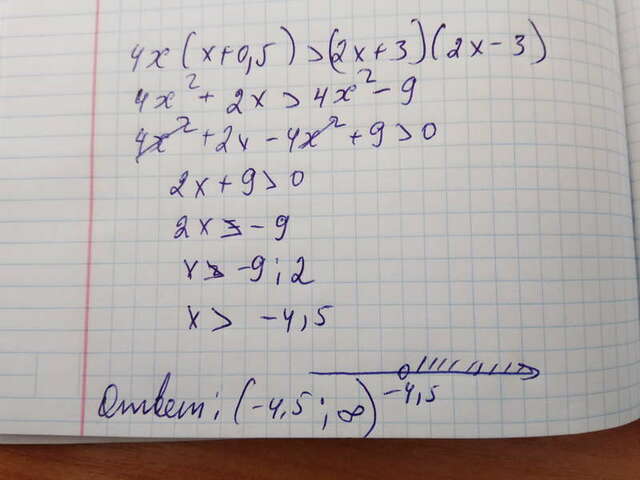 4x (x+0,5) > (2x+3)(2x-3)
4x² + 2x > 4x² - 9
4x² + 2x - 4x² + 9 > 0
2x + 9 > 0
2x > -9
x > -9 : 2
x > -4,5
-4,5
Ответ: (-4,5 ; ∞)